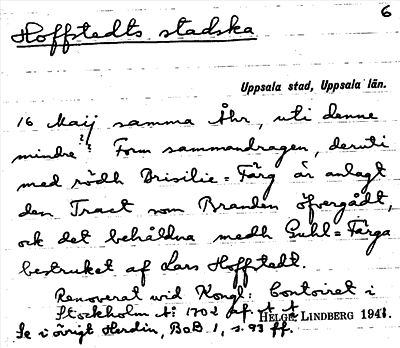 6
Hoffstedts stadska
Uppsala stad, Uppsala län.
16 Maij samma Åhr, uti denne
mindre?? Form sammandragen, deruti
med rödh Brisilie=Färg är anlagt
den Tract som Branden öfvergådt,
och det behåldna medh Guhl=Färga
bestruket af Lars Hoffstedt.
Renoverat wid Kongl: Contoiret i
Stockholm A: 1702 af
HELGE LINDBERG 1941.
Se i övrigt Herdin, BoB. 1, s. 93 ff.